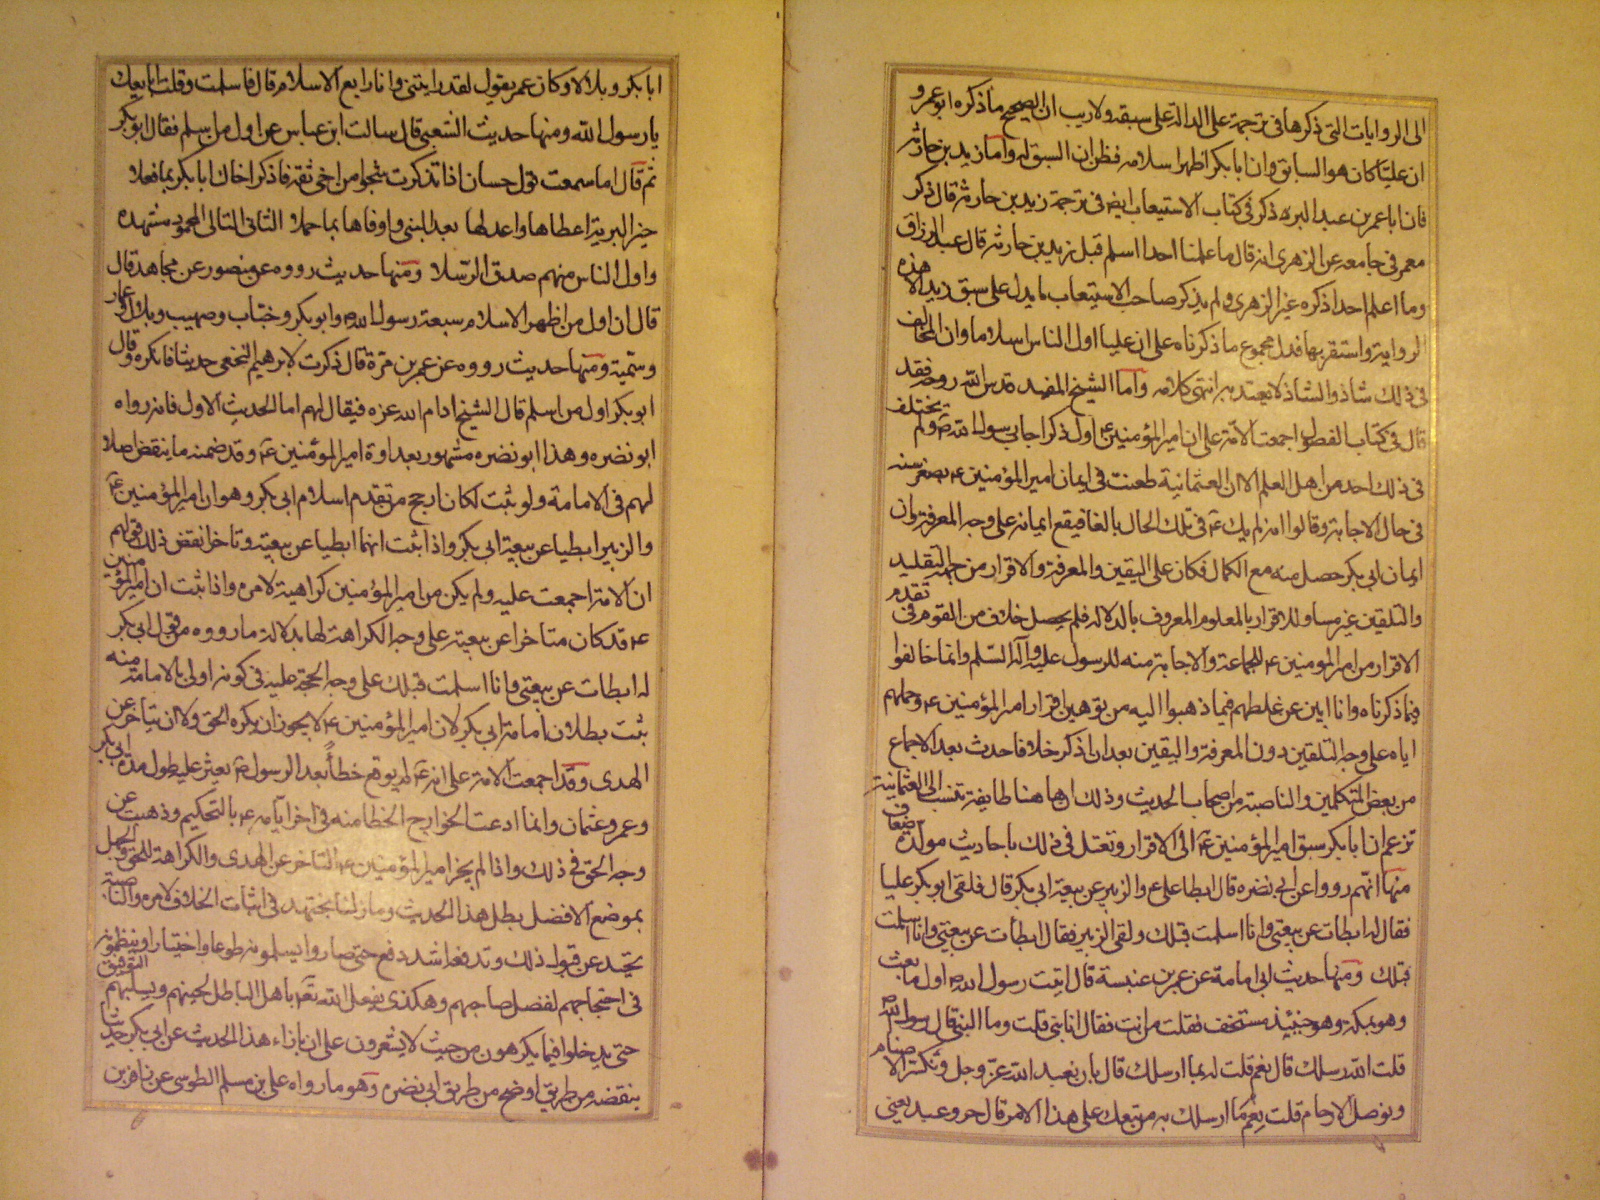 الى الروايات التى ذكرها فى ترجمة على الدالة على سبقه ولاريب ان الصحيح ما ذكره ابو عمرو
ان عليا كان هو السابق وان ابا بكر اظهر اسلامه فظن ان السبق له واما زيد بن حارثه
فان ابا عمر بن عبد البر ذكر فى كتاب الاستيعاب ايض فى ترجمة زيد بن حارثه قال ذكر
معمر فى جامعه عن الزهرى انه قال ما علمنا احدا اسلم قبل زيد بن حارثه قال عبد الرزاق
وما اعلم احدا ذكره غير الزهرى ولم يذكر صاحب الاستيعاب ما يدل على سبق زيد الا هذه
الرواية واستقر بها فدل مجموع ما ذكرناه على ان عليا اول الناس اسلاما وان المخالف
فى ذلك شاذ والشاذ لا يعتد به انتهى كلامه واما الشيخ المفيد قدس الله روحه فقد
قال فى كتاب الفصول اجمعت الامة على ان امير المؤمنين ع اول ذكر اجاب رسول الله ص ولم يختلف
فى ذلك احد من اهل العلم الا ان العثمانية طعنت فى ايمان امير المؤمنين ع بصغر سنه
فى حال الاجابة وقالوا انه لم يك ع فى تلك الحال بالغا فيقع ايمانه على وجه المعرفة وان
ايمان ابى بكر حصل منه مع الكمال فكان على اليقين والمعرفة والاقرار من جهة التقليد
والتلقين غير مساو للاقرار بالمعلوم المعروف بالدلالة فلم يحصل خلاف من القوم فى تقدم
الاقرار من امير المؤمنين ع للجماعة والاجابة منه للرسول عليه وآله السلم وانما خالفوا
فيما ذكرناه وانا ابين عن غلطهم فيما ذهبوا اليه من توهين اقرار امير المؤمنين ع وحملهم
اياه على وجه التلقين دون المعرفة واليقين بعد ان اذكر خلافا حدث بعد الاجماع
من بعض المتكلمين والناصبة من اصحاب الحديث وذلك ان هاهنا طايفة تنسب الى العثمانية
تزعم ان ابا بكر سبق امير المؤمنين ع الى الاقرار وتعتل فى ذلك باحاديث مولدة ضعاف
منها انهم رووا عن ابى نضره قال ابطا على ع والزبير عن بيعة ابى بكر قال فلقى ابو بكر عليا
فقال له ابطات عن بيعتى وانا اسلمت قبلك ولقى الزبير فقال ابطأت عن بيعتى وانا اسلمت
قبلك ومنها حديث ابى امامة عن عمر بن عنبسة قال اتيت رسول الله ص اول ما بعث
وهو بمكه وهو حينئذ مستخف فقلت من انت فقال انا نبى قلت وما النبى قال رسول الله
قلت الله ارسلك قال نعم قلت له بما ارسلك قال بان نعبد الله عز وجل ونكسر الاصنام
ونوصل الارحام قلت نعم ما ارسلك به من تبعك على هذا الامر قال حر وعبد يعنى
ابا بكر وبلالا وكان عمر يقول لقد رايتنى وانا رابع الاسلام قال فاسلمت وقلت ابايعك
يا رسول الله ومنها حديث الشعبى قال سالت ابن عباس عن اول من اسلم فقال ابو بكر
ثم قال اما سمعت قول حسان اذا تذكرت شجوا من اخى ثقة فاذكر اخاك ابا بكر بما فعلا
خير البرية اعطاها واعدلها بعد النبى واوفاها بما حملا الثانى التالى المحمود مشهده
واول الناس منهم صدق الرسلا ومنها حديث رووه عن منصور عن مجاهد قال
قال ان اول من اظهر الاسلام سبعة رسول الله ص وابو بكر وخباب وصهيب وبلال وعمار
وسمية ومنها حديث رووه عن عمر بن مرة قال ذكرت لابرهيم النخعى حديثا فانكره وقال
ابو بكر اول من اسلم قال الشيخ ادام الله عزه فيقال لهم اما الحديث الاول فانه رواه
ابو نضره وهذا ابو نضره مشهور بعداوة امير المؤمنين ع وقد ضمنه ما ينقض اصلا
لهم فى الامامة ولو ثبت لكان ارجح من تقدم اسلام ابى بكر وهو ان امير المؤمنين ع
والزبير ابطيا عن بيعة ابى بكر واذا ثبت انهما ابطيا عن بيعته وتاخرا نقض ذلك قولهم
ان الامة اجمعت عليه ولم يكن من امير المؤمنين كراهية لامره واذا ثبت ان امير المؤمنين
ع قد كان متاخرا عن بيعته على وجه الكراهة لها بدلالة ما رووه من قول ابى بكر
له ابطات عن بيعتى وانا اسلمت قبلك على وجه الحجة عليه فى كونه اولى بالامامة منه
ثبت بطلان امامة ابى بكر لان امير المؤمنين ع لا يجوز ان يكره الحق ولا ان يتاخر عن
الهدى وقد اجمعت الامة على انه ع لم يوقع خطأ بعد الرسول ص يعثر عليه طول مدة ابى بكر
وعمر وعثمان وانما ادعت الخوارج الخطا منه فى اخر ايامه ع بالتحكيم وذهبت عن
وجه الحق فى ذلك واذا لم يجز امير المؤمنين ع التاخر عن الهدى والكراهة للحق والجهل
بموضع الافضل بطل هذا الحديث وما زلنا نجتهد فى اثبات الخلاف لامره والناصبة
تحيد عن قبول ذلك وتدفعه اشد دفع حتى صاروا يسلمونه طوعا واختيارا وينظمونه
فى احتجاجهم لفضل صاحبهم وهكذى يفعل الله تع باهل الباطل لحينهم ويسلبهم التوفيق
حتى يدخلوا فيما يكرهون من حيث لا يشعرون على ان بازاء هذا الحديث عن ابى بكر حديثا
ينقضه من طريق اوضح من طريق ابى نضره وهو ما رواه على بن مسلم الطوسى عن زافر بن